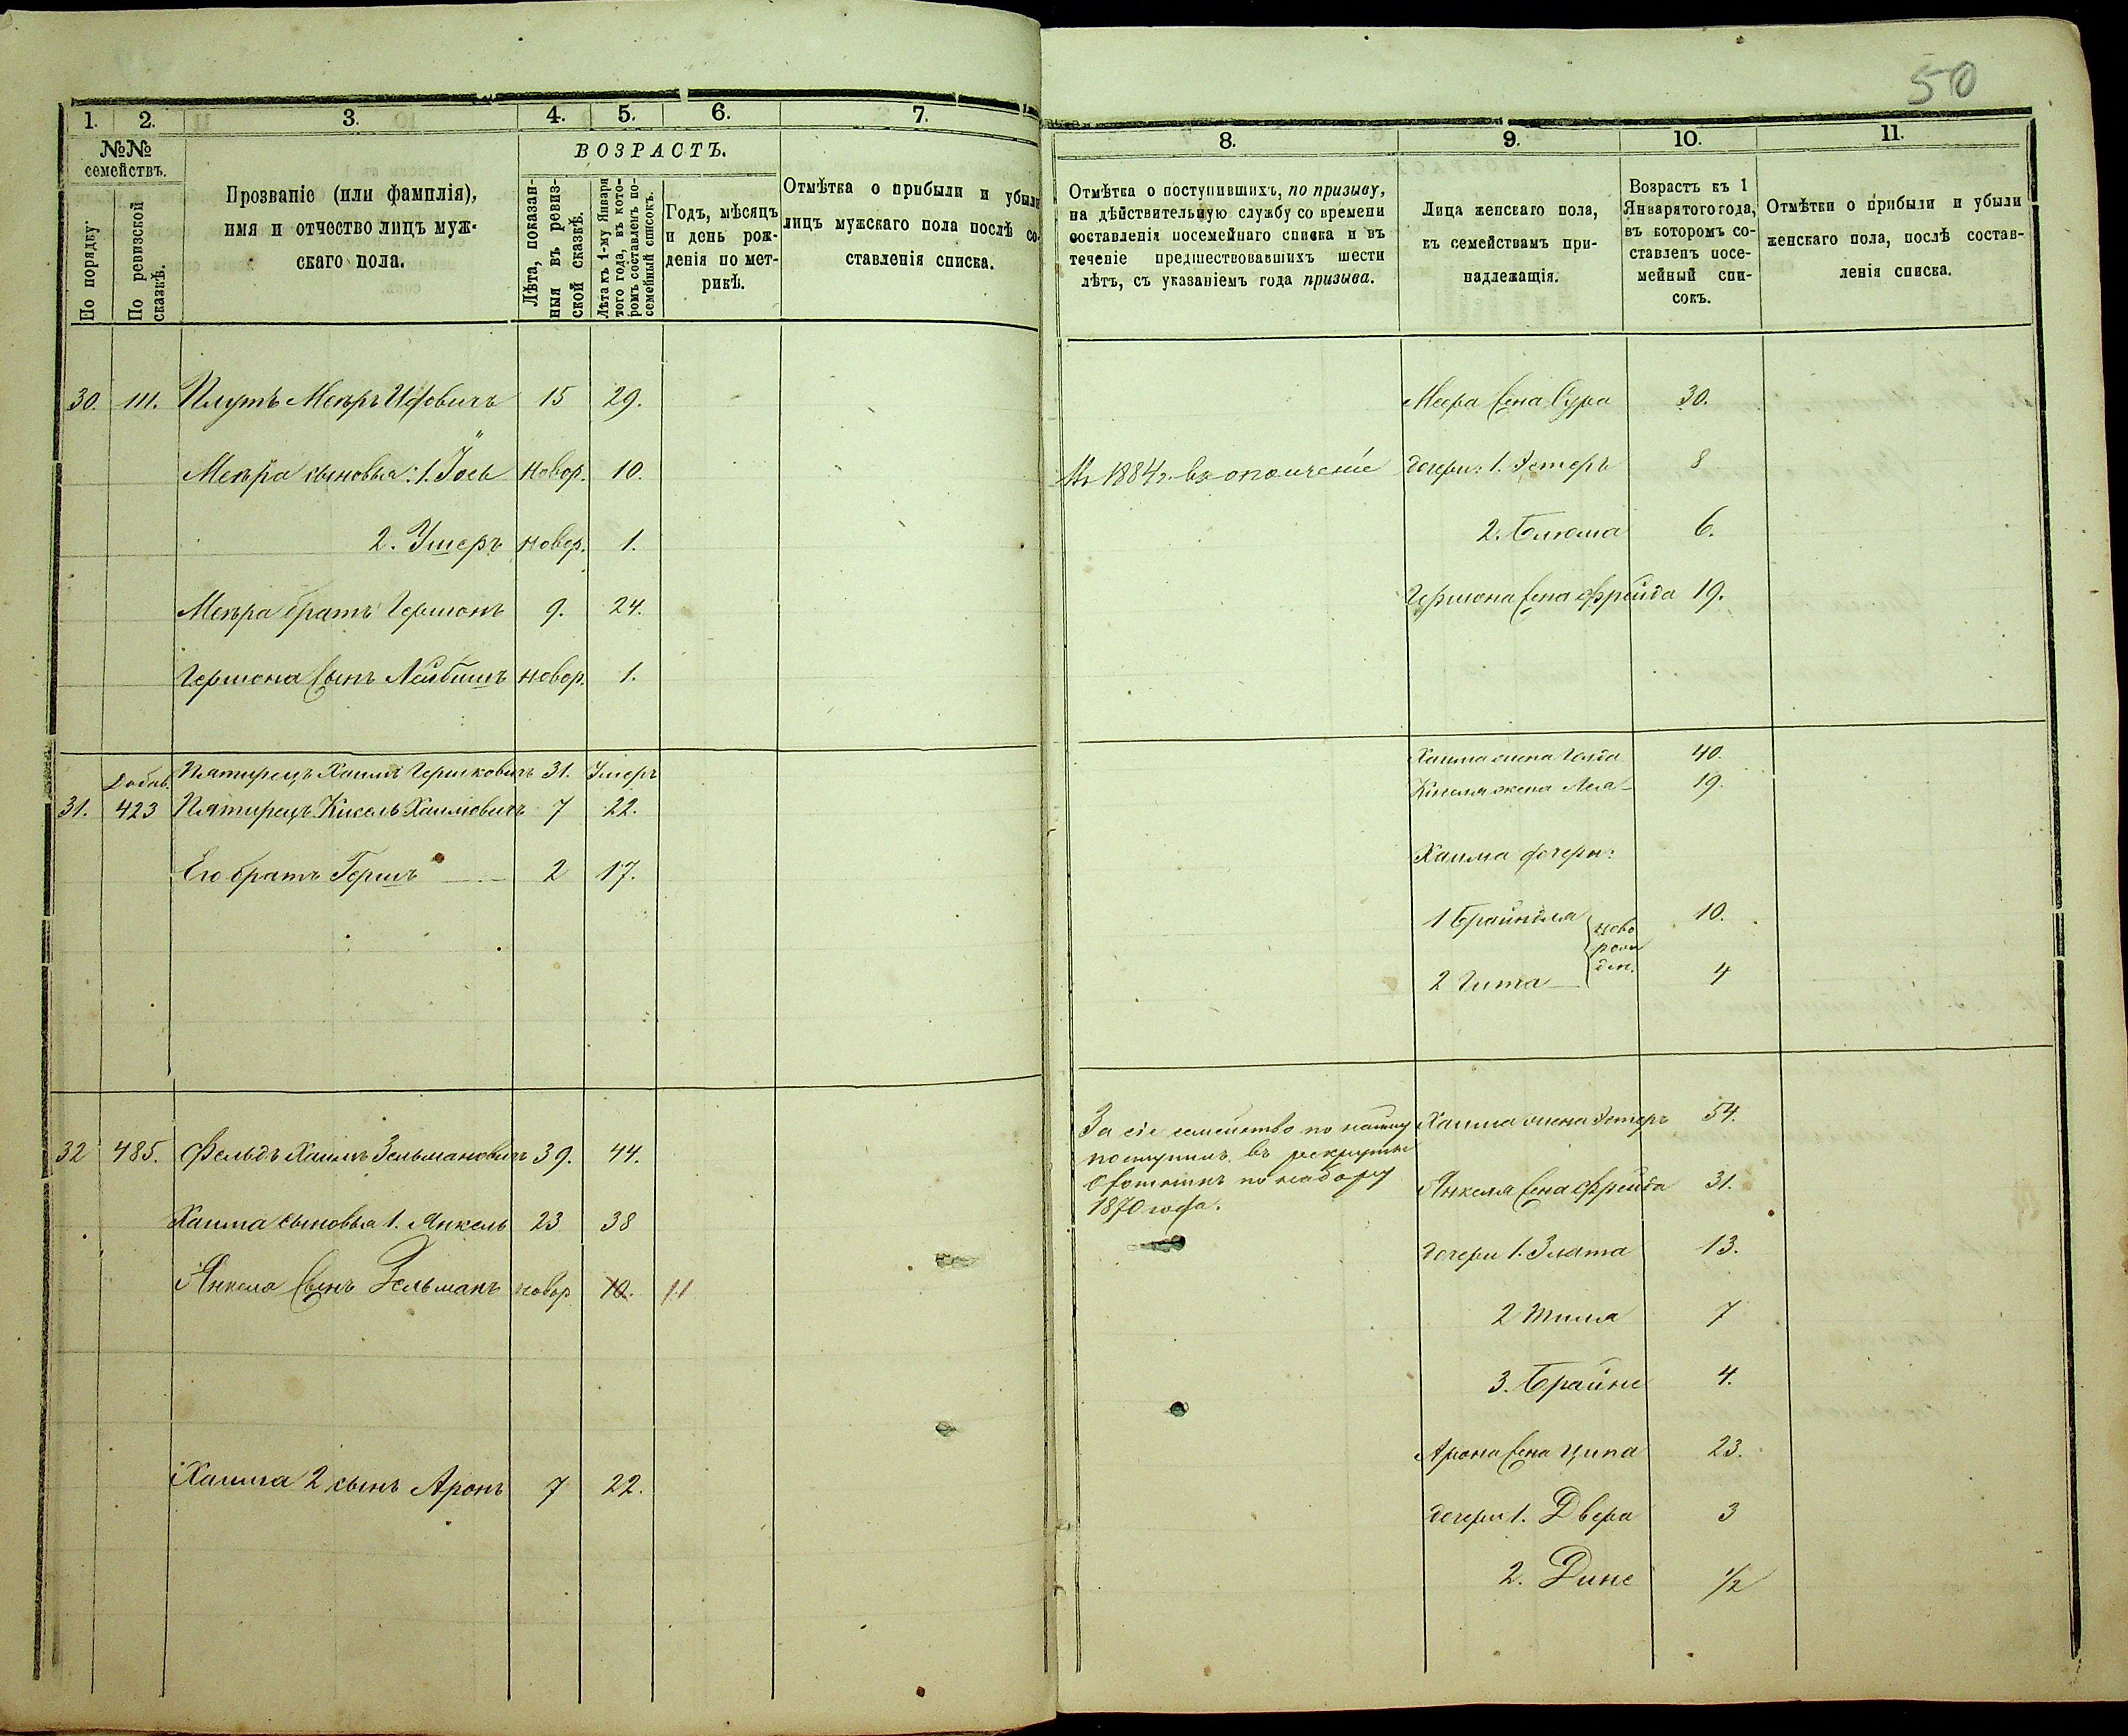 50
1. 2. 3. 4. 5. 6. 7.
№№ семействъ.
По порядку.
По ревизской сказкѣ.
Прозваніе (или фамилія),
имя и отчество лицъ муж-
скаго пола.
ВОЗРАСТЪ.
Лѣта, показан-
ныя въ ревиз-
ской сказкѣ.
Лѣта къ 1-му Января
того года, въ кото-
ромъ составленъ по-
семейный списокъ.
Годъ, мѣсяцъ
и день рож-
денія по мет-
рикѣ.
Отмѣтка о прибыли и убыли
лицъ мужскаго пола послѣ со-
ставленія списка.
30. 111. Плутъ Меиръ 15 29.
Меира сыновья: 1. Іось новор. 10.
2. Ушеръ новор. 1.
Меира братъ Гершонъ 9. 24.
Гершона сынъ Лейбишъ новор. 1.
Добав. Пятирецъ Хаимъ Гершковичъ 31. Умеръ
31. 423 Пятирецъ Кисель Хаимовичъ 7 22.
Его братъ Гершъ 2 17.
32 485. Фельдъ Хаимъ Зельмановичъ 39. 44.
Хаима сыновья 1. Янкель 23 38
Янкеля сынъ Зельманъ новор 10. 11
Хаима 2 сынъ Аронъ 7 22.
8. 9. 10. 11.
Отмѣтка о поступившихъ, по призыву,
на дѣйствительную службу со времени
составленія посемейнаго списка и въ
теченіе предшествовавшихъ шести
лѣтъ, съ указаніемъ года призыва.
Лица женскаго пола,
къ семействамъ при-
надлежащія.
Возрастъ къ 1
Января того года,
въ которомъ со-
ставленъ посе-
мейный спи-
сокъ.
Отмѣтки о прибыли и убыли
женскаго пола, послѣ состав-
ленія списка.
Меера жена Сура 30.
1884 г. въ ополченіе дочери: 1. Эстеръ 8
2. Блюма 6.
Гершона жена Фрейда 19.
Хаима жена Голда 40.
Киселя жена Лея 19.
Хаима дочери:
1 Брайндля 10.
новорожден.
2 Гитта 4
За сіе семейство по найму
поступилъ въ рекруты
по набору
1870 года.
Хаима жена Эстеръ 54.
Янкеля жена Фрейда 31.
дочери 1. Злата 13.
2 7
3. Брайне 4.
Арона жена Ципа 23.
дочери 1. Двера 3
2. Дине 1/2